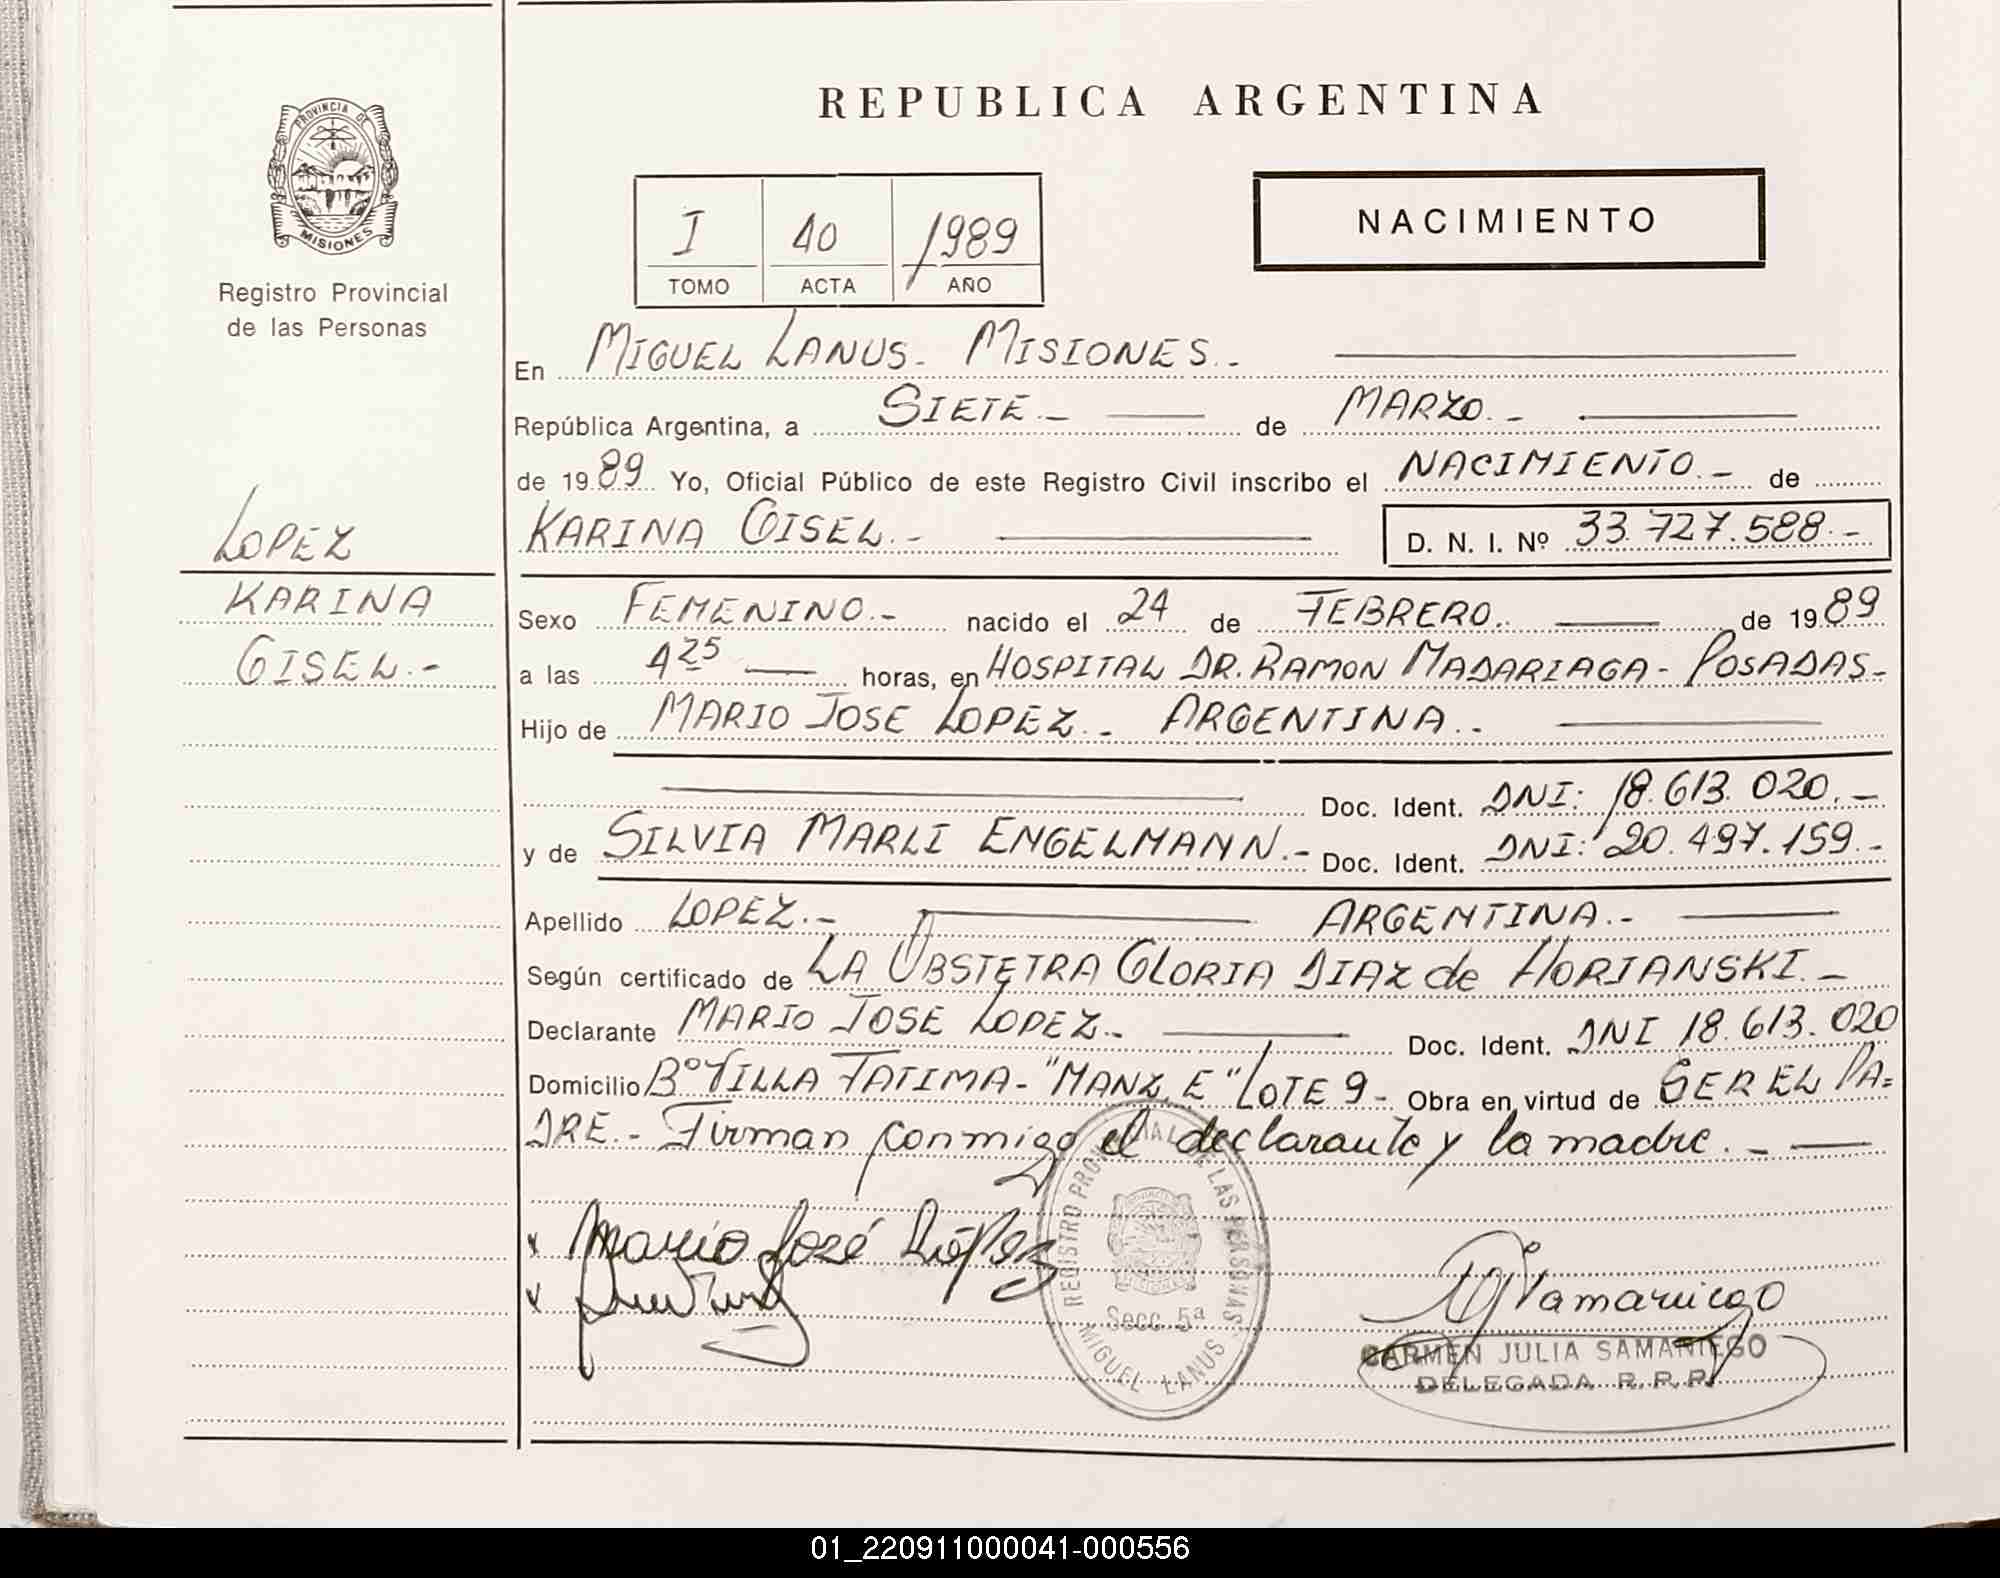 REPUBLICA ARGENTINA
PROVINCIA DE
MISIONES
Registro Provincial
de las Personas
NACIMIENTO
I 40 1989
TOMO ACTA AÑO
En MIGUEL LANUS.- MISIONES.-
República Argentina, a SIETE.- de MARZO.-
de 1989 Yo, Oficial Público de este Registro Civil inscribo el NACIMIENTO.- de
KARINA GISEL.- D. N. I. Nº 33.727.588.-
LOPEZ
KARINA
GISEL.-
Sexo FEMENINO.- nacido el 24 de FEBRERO. de 1989
a las 4 25 horas, en HOSPITAL DR. RAMON MADARIAGA - POSADAS-
Hijo de MARIO JOSE LOPEZ.- ARGENTINA.-
Doc. Ident. DNI: 18.613.020.-
y de SILVIA MARLI ENGELMANN.- Doc. Ident. DNI: 20.497.159.-
Apellido LOPEZ.- ARGENTINA.-
Según certificado de LA OBSTETRA GLORIA DIAZ de HORIANSKI.-
Declarante MARIO JOSE LOPEZ.- Doc. Ident. DNI 18.613.020
Domicilio Bº VILLA FATIMA - "MANZ. E" LOTE 9 - Obra en virtud de SER EL PA=
DRE.- Firman conmigo el declarante y la madre.-
Mario José López
REGISTRO PROVINCIAL DE LAS PERSONAS
Secc. 5ª
MIGUEL LANUS
Samaniego
CARMEN JULIA SAMANIEGO
DELEGADA R.P.P.
01_220911000041-000556